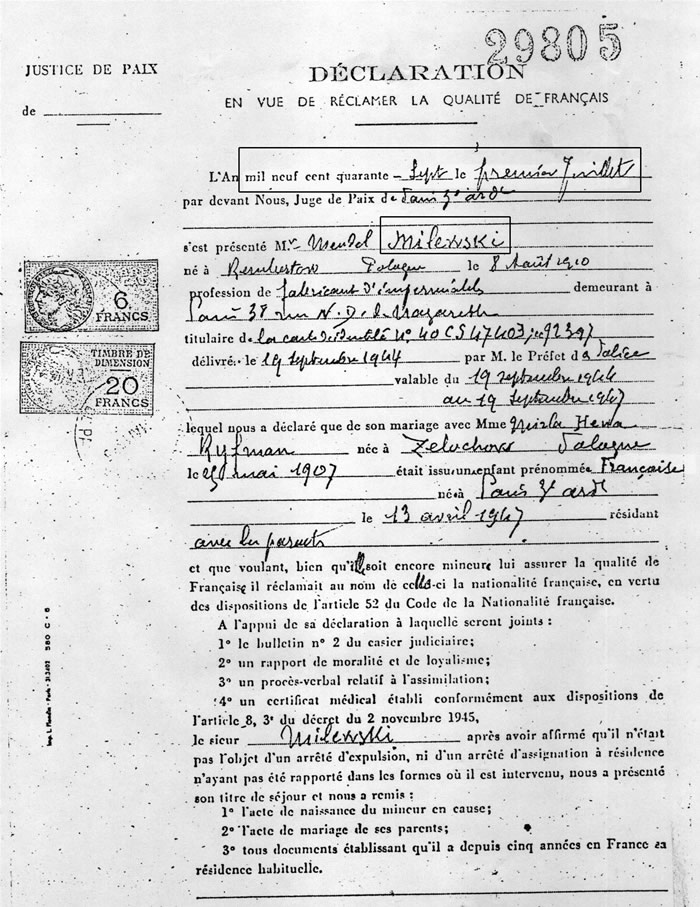 29805
JUSTICE DE PAIX
de
DÉCLARATION
EN VUE DE RÉCLAMER LA QUALITÉ DE FRANÇAIS
L'An mil neuf cent quarante - Sept le premier Juillet
par devant Nous, Juge de Paix de Paris 3e ardt
s'est présenté Mr Mendel Milewski
né à Rembertow Pologne le 8 Août 1910
profession de fabricant d'imperméables demeurant à
Paris 38 rue N. D. de Nazareth
titulaire de la carte d'identité No 40 CS 47403
délivré le 19 septembre 1944 par M. le Préfet de Police
valable du 19 septembre 1944
au 19 septembre 1947
lequel nous a déclaré que de son mariage avec Mme
Ryfman née à Zelechow Pologne
le mai 1907 était issu un enfant prénommée Française
né à Paris 3e ardt
le 13 avril 1947 résidant
avec les parents
et que voulant, bien qu'elle soit encore mineure lui assurer la qualité de
Française il réclamait au nom de celle-ci la nationalité française, en vertu
des dispositions de l'article 52 du Code de la Nationalité française.
A l'appui de sa déclaration à laquelle seront joints :
1° le bulletin n° 2 du casier judiciaire;
2° un rapport de moralité et de loyalisme;
3° un procès-verbal relatif à l'assimilation;
4° un certificat médical établi conformément aux dispositions de
l'article 8, 3° du décret du 2 novembre 1945,
le sieur Milewski après avoir affirmé qu'il n'était
pas l'objet d'un arrêté d'expulsion, ni d'un arrêté d'assignation à résidence
n'ayant pas été rapporté dans les formes où il est intervenu, nous a présenté
son titre de séjour et nous a remis :
1° l'acte de naissance du mineur en cause;
2° l'acte de mariage de ses parents;
3° tous documents établissant qu'il a depuis cinq années en France sa
résidence habituelle.
6
FRANCS
TIMBRE DE
DIMENSION
20
FRANCS